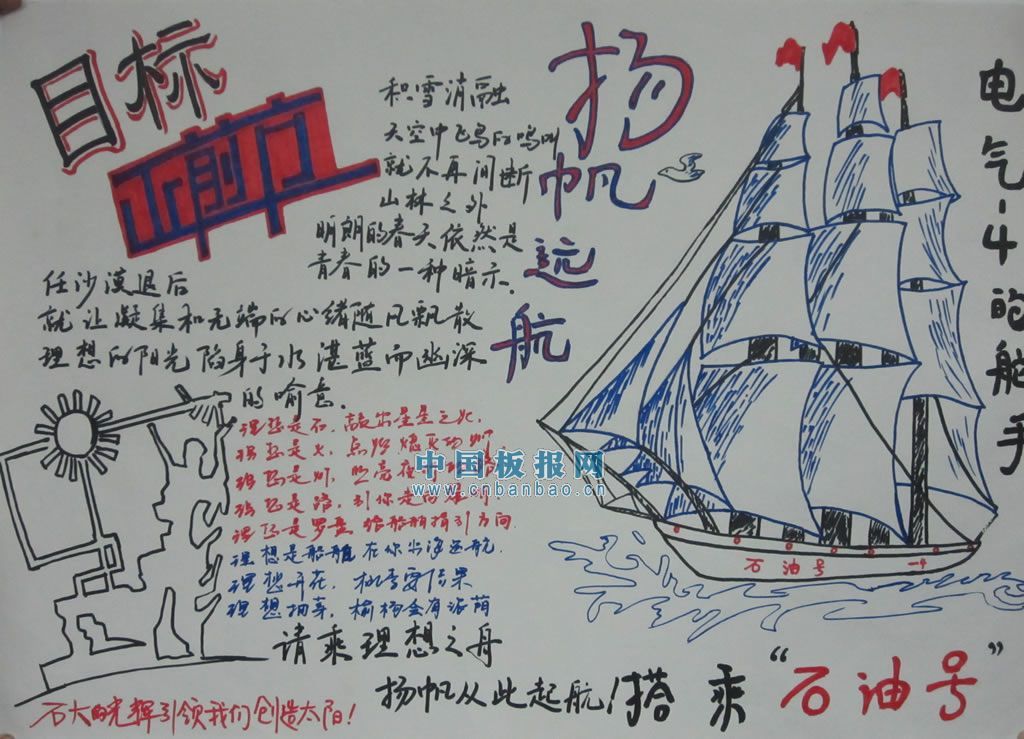 目标
正前方
和雪消融
天空中飞鸟的鸣叫
就不再间断
山林之外
明朗的春天依然是
青春的一种暗示.
任沙漠退后
就让凝集和无端的心绪随风飘散
理想的阳光陷身于水湛蓝而幽深
的喻意.
扬帆远航
理想是石,敲出星星之火,
理想是火,点燃熄灭的灯,
理想是灯,照亮夜
理想是路,引你走
理想是罗盘 给船舶指引方向.
理想是船舶 在你出海远航.
理想开花, 桃李要结果
理想抽芽, 榆杨会有浓荫
请乘理想之舟
扬帆从此起航!搭乘“石油号”
石大的光辉引领我们创造太阳!
电气-4的船手
石油号 -4
中国板报网
www.cnbanbao.cn